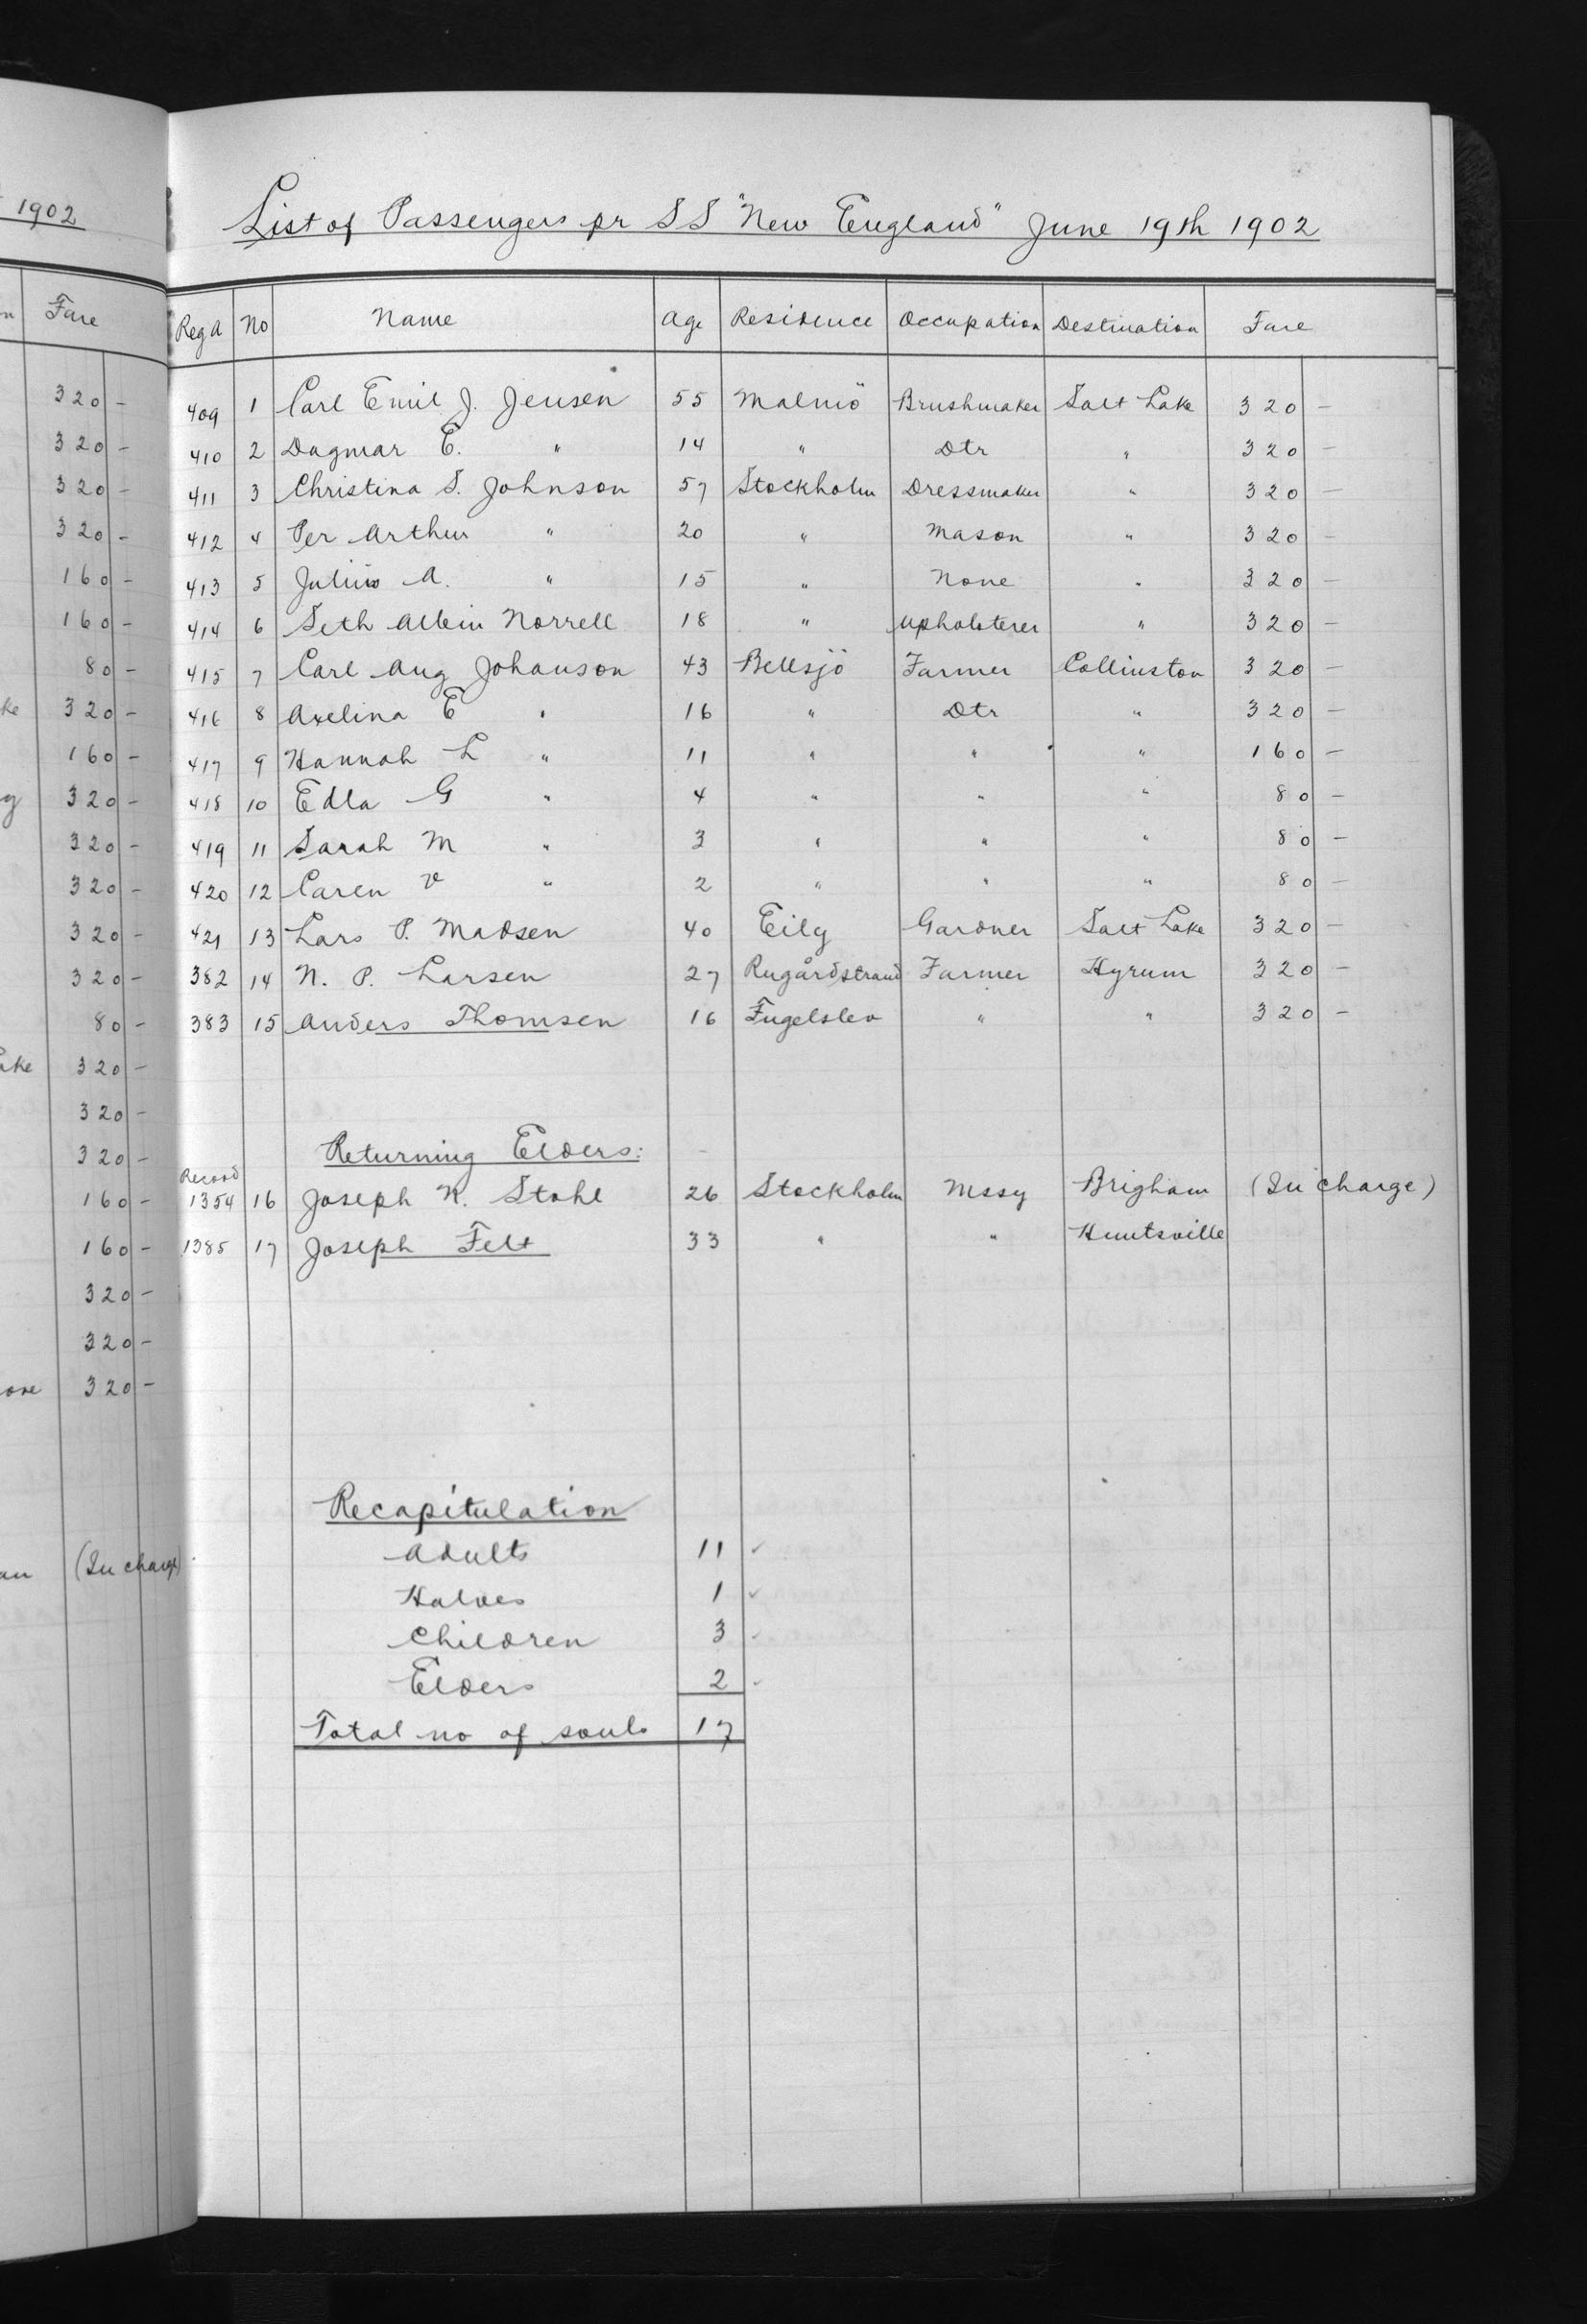 1902
Fare
320 -
320 -
320 -
320 -
160 -
160 -
80 -
320 -
160 -
320 -
320 -
320 -
320 -
320 -
80 -
320 -
320 -
320 -
160 -
160 -
320 -
320 -
320 -
(In charge)
List of Passengers pr S S "New England" June 19th 1902
Reg A No Name Age Residence Occupation Destination Fare
409 1 Carl Emil J. Jensen 55 Malmö Brushmaker Salt Lake 320 -
410 2 Dagmar E. " 14 " Dtr " 320 -
411 3 Christina S. Johnson 57 Stockholm Dressmaker " 320 -
412 4 Per Arthur " 20 " Mason " 320 -
413 5 Julius A. " 15 " None " 320 -
414 6 Seth Albin Norrell 18 " Upholsterer " 320 -
415 7 Carl Aug Johanson 43 Bellsjö Farmer Collinston 320 -
416 8 Axelina E " 16 " Dtr " 320 -
417 9 Hannah L " 11 " " " 160 -
418 10 Edla G " 4 " " " 80 -
419 11 Sarah M " 3 " " " 80 -
420 12 Caren V " 2 " " " 80 -
421 13 Lars P. Madsen 40 Eily Gardner Salt Lake 320 -
382 14 N. P. Larsen 27 Rugårdstrand Farmer Hyrum 320 -
383 15 Anders Thomsen 16 Fugelslev " " 320 -
Returning Elders:
Record
1354 16 Joseph N. Stohl 26 Stockholm Mssy Brigham (In charge)
1385 17 Joseph Felt 33 " " Huntsville
Recapitulation
Adults 11 ✓
Halves 1 ✓
Children 3 ✓
Elders 2 ✓
Total no of souls 17